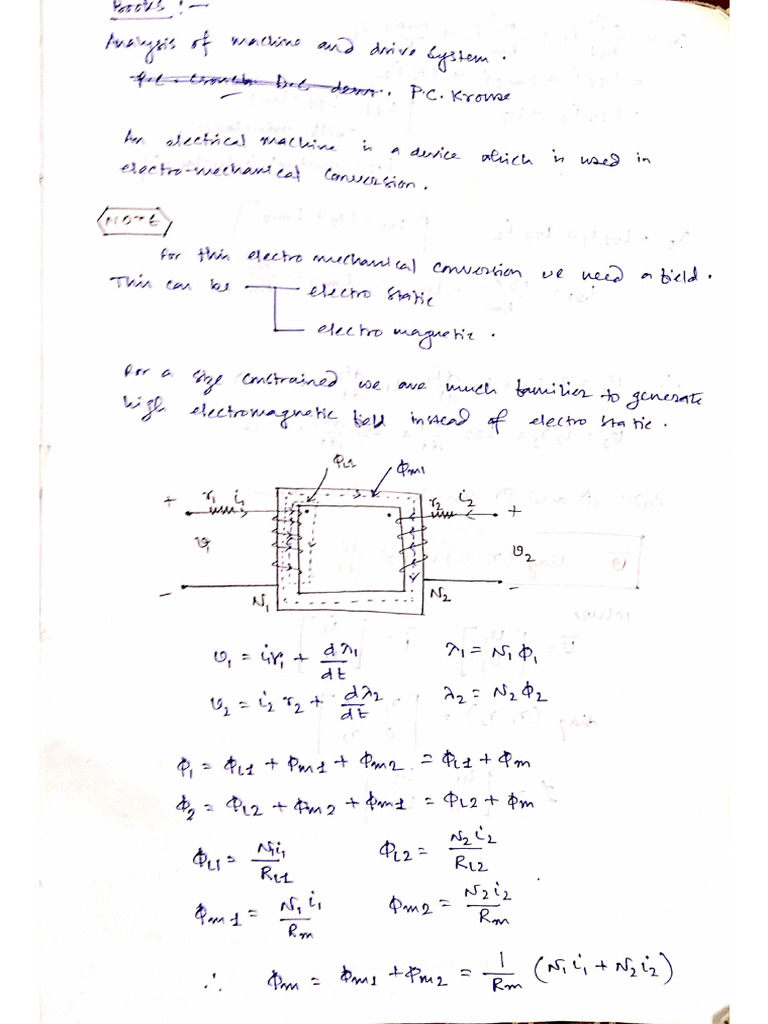 Books :-
Analysis of machine and drive system.
P.C. Krouse
An electrical machine is a device which is used in
electro-mechanical conversion.
NOTE
For this electro mechanical conversion we need a field.
This can be electro static
electro magnetic.
For a size constrained we are much familier to generate
high electromagnetic field instead of electro static.
ΦL2 Φm1
+ r1 i1 r2 i2 +
v1 v2
- N1 N2 -
v1 = i1r1 + dλ1/dt λ1 = N1Φ1
v2 = i2 r2 + dλ2/dt λ2 = N2Φ2
Φ1 = ΦL1 + Φm1 + Φm2 = ΦL1 + Φm
Φ2 = ΦL2 + Φm2 + Φm1 = ΦL2 + Φm
ΦL1 = N1i1/RL1 ΦL2 = N2i2/RL2
Φm1 = N1i1/Rm Φm2 = N2i2/Rm
∴ Φm = Φm1 + Φm2 = 1/Rm (N1i1 + N2i2)